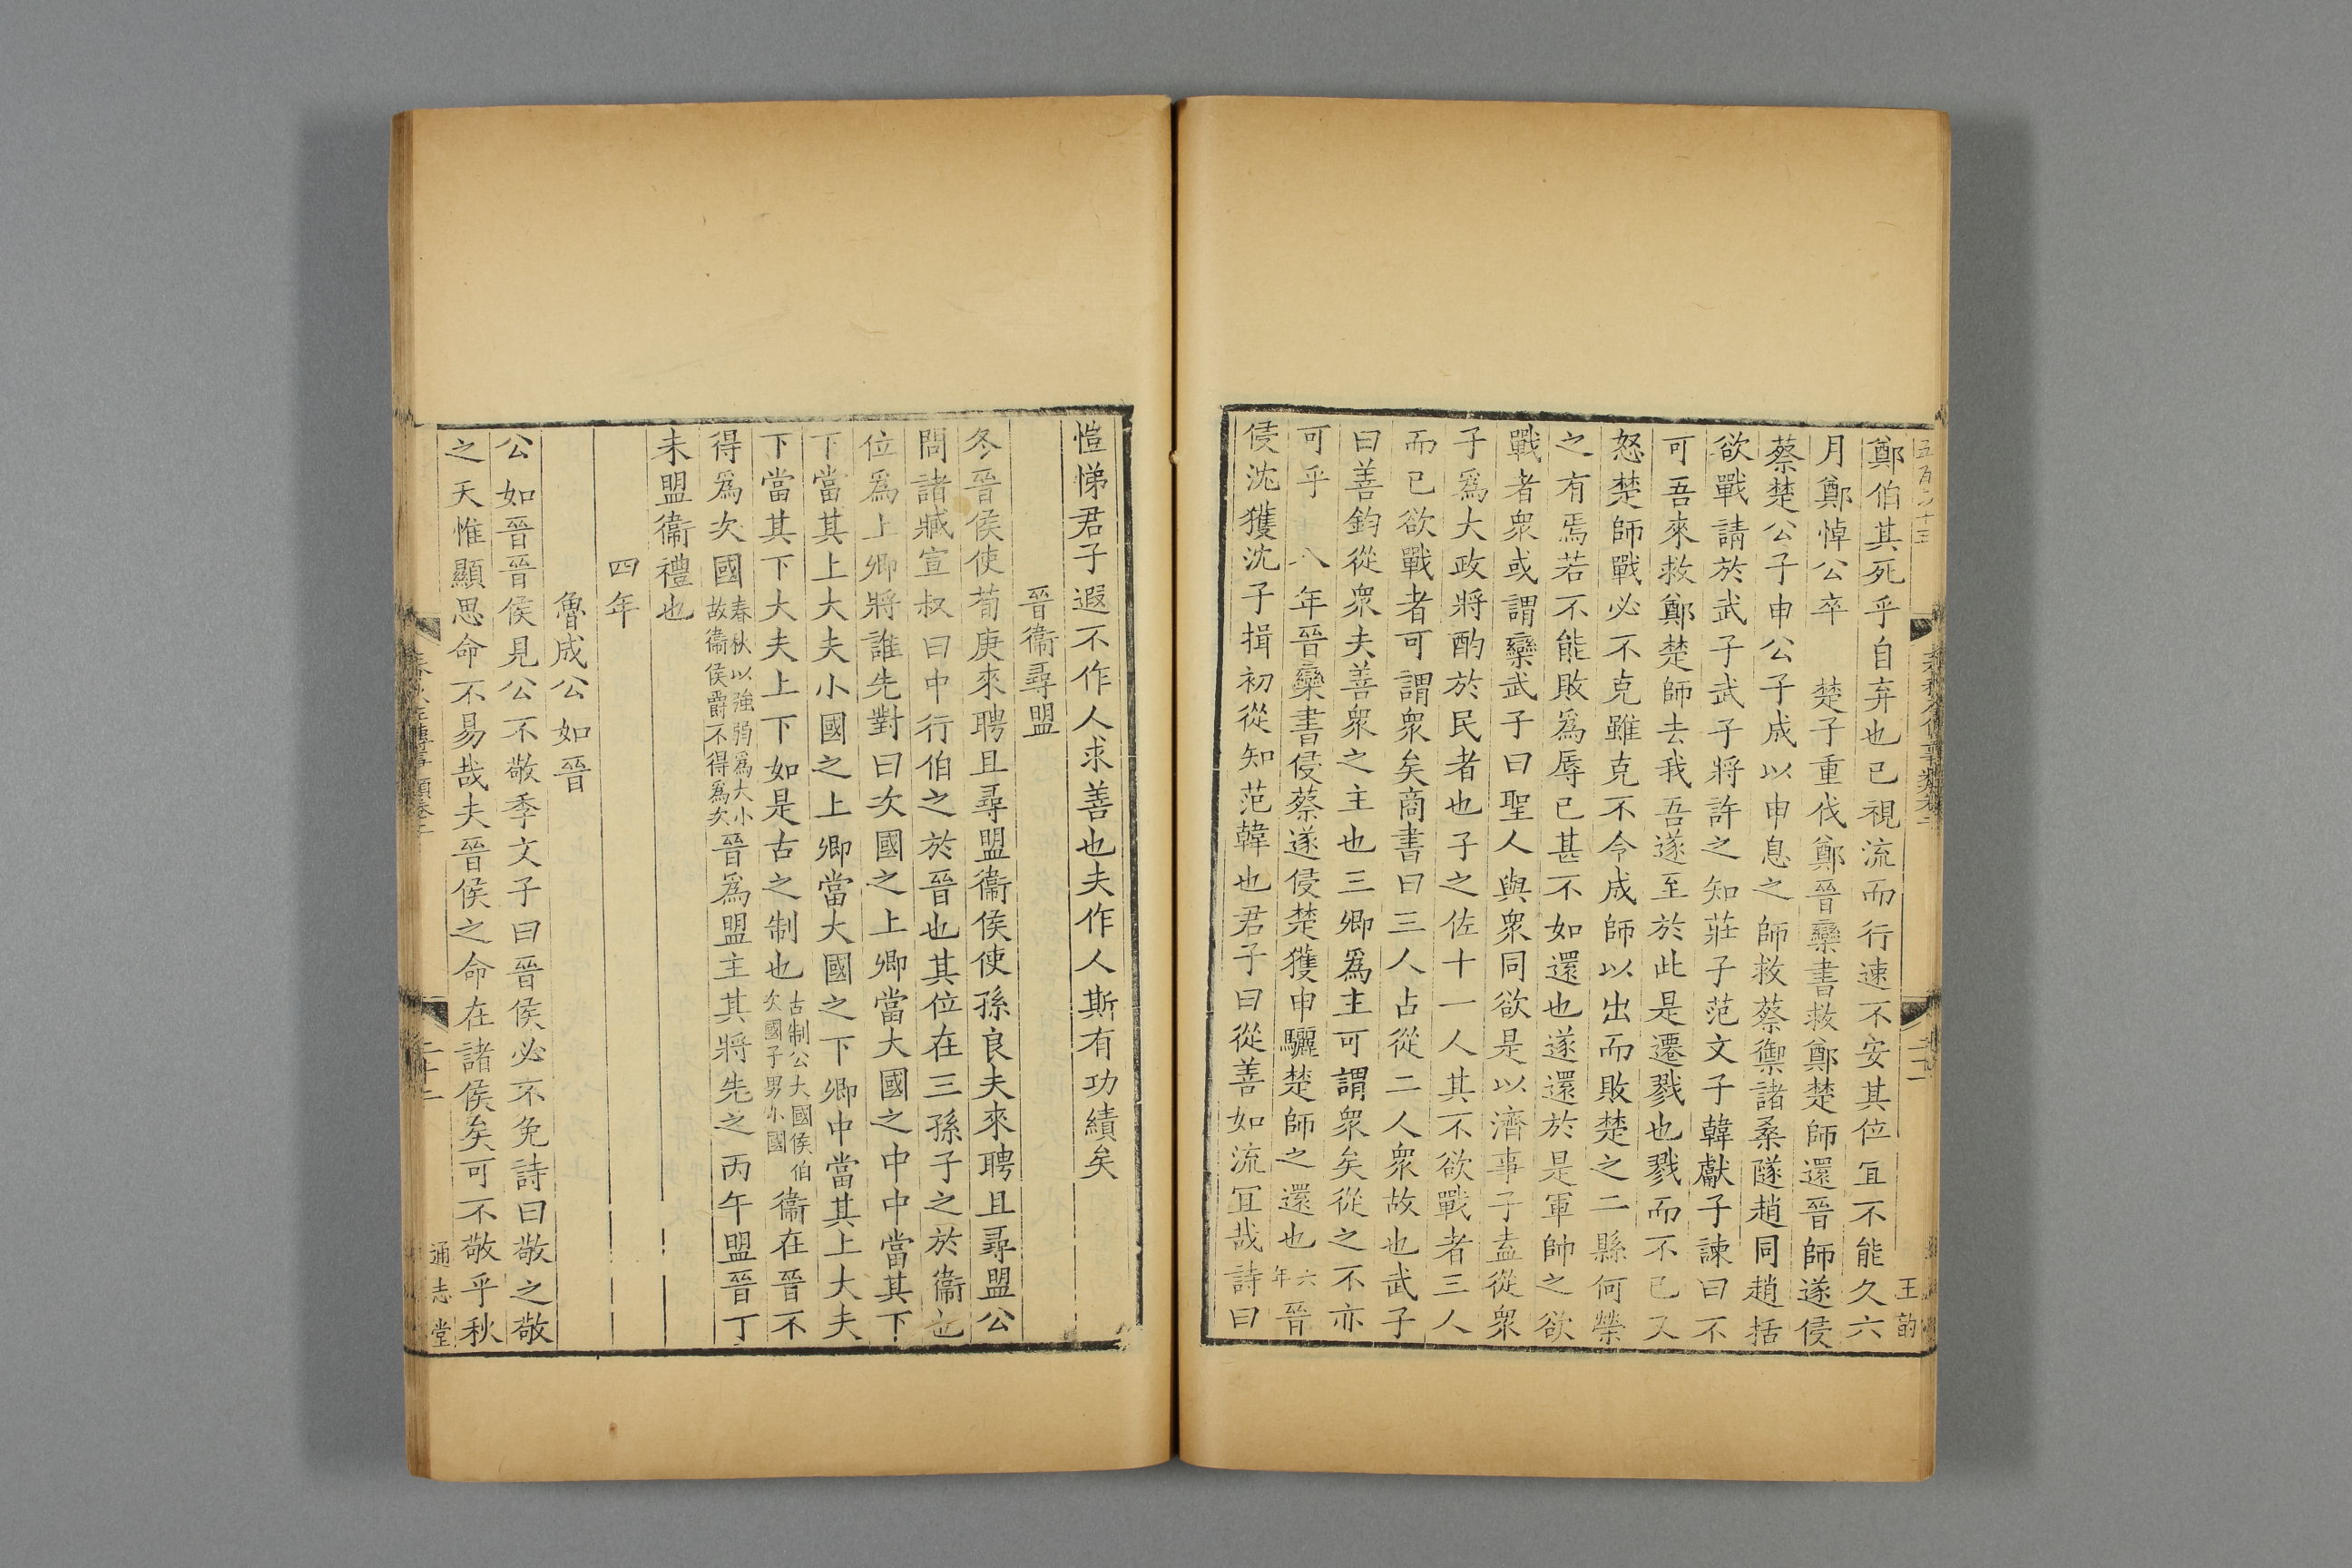 鄭伯其死乎自弃也已視流而行速不安其位冝不能久六
月鄭悼公卒　楚子重伐鄭晉欒書救鄭楚師還晉師遂侵
蔡楚公子申公子成以申息之師救蔡禦諸桑隧趙同趙括
欲戰請於武子武子將許之知莊子范文子韓獻子諫曰不
可吾來救鄭楚師去我吾遂至於此是遷戮也戮而不已又
怒楚師戰必不克雖克不令成師以出而敗楚之二縣何榮
之有焉若不能敗爲辱已甚不如還也遂還於是軍帥之欲
戰者衆或謂欒武子曰聖人與衆同欲是以濟事子盍從衆
子爲大政將酌於民者也子之佐十一人其不欲戰者三人
而已欲戰者可謂衆矣商書曰三人占從二人衆故也武子
曰善鈞從衆夫善衆之主也三卿爲主可謂衆矣從之不亦
可乎　八年晉欒書侵蔡遂侵楚獲申驪楚師之還也六年晉
侵沈獲沈子揖初從知范韓也君子曰從善如流冝哉詩曰
王的
愷悌君子遐不作人求善也夫作人斯有功績矣
晉衞尋盟
冬晉侯使荀庚來聘且尋盟衞侯使孫良夫來聘且尋盟公
問諸臧宣叔曰中行伯之於晉也其位在三孫子之於衞也
位爲上卿將誰先對曰次國之上卿當大國之中中當其下
下當其上大夫小國之上卿當大國之下卿中當其上大夫
下當其下大夫上下如是古之制也古制公大國侯伯次國子男小國衞在晉不
得爲次國春秋以強弱爲大小故衞侯爵不得爲次晉爲盟主其將先之丙午盟晉丁
未盟衞禮也
四年
魯成公如晉
公如晉晉侯見公不敬季文子曰晉侯必不免詩曰敬之敬
之天惟顯思命不易哉夫晉侯之命在諸侯矣可不敬乎秋
通志堂